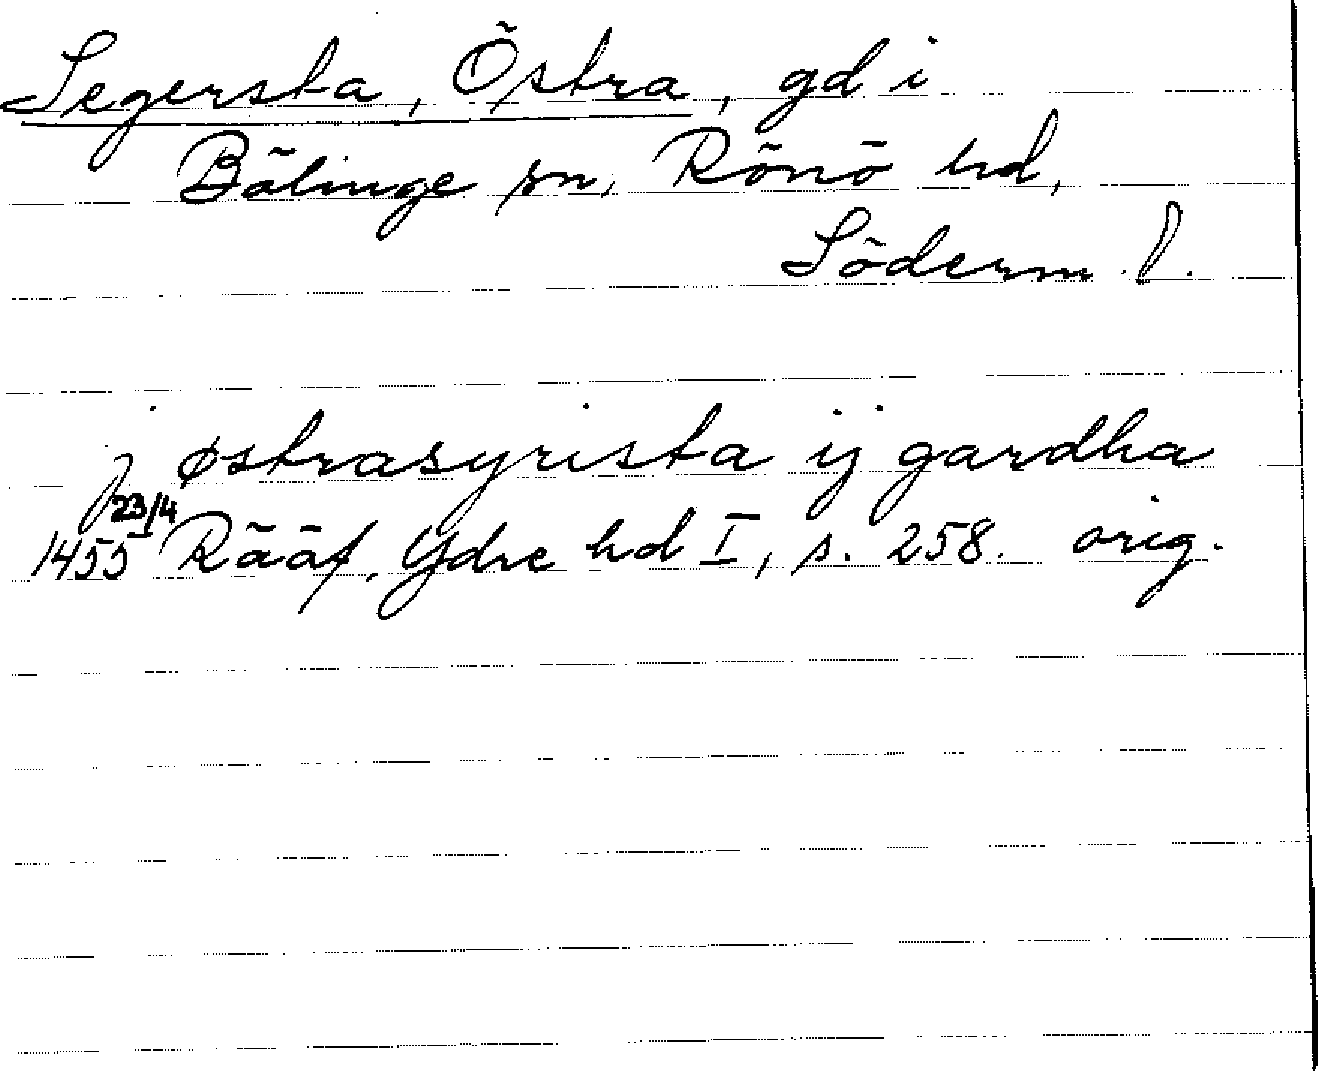 Segersta, Östra, gd i
Bälinge sn, Rönö hd,
Söderm. l.
j østrasyrista ij gardha
23/4
1455 Rääf, Ydre hd I, s. 258. orig.